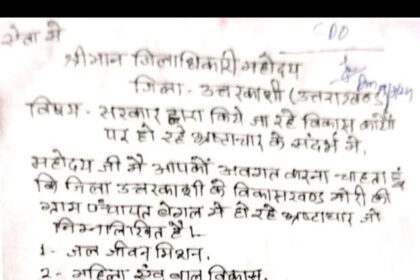 सेवा में
CDO
श्रीमान जिलाधिकारी महोदय
जिला - उत्तरकाशी (उत्तराखण्ड)
विषय - सरकार द्वारा किये जा रहे विकास कार्यो
पर हो रहे भ्रष्टाचार के संदर्भ में.
महोदय जी मै आपको अवगत करना चाहता हूँ
कि जिला उत्तरकाशी के विकासखण्ड मोरी की
ग्राम पंचायत बेगल मे हो रहे भ्रष्टाचार जो
निम्नलिखित है।-
1- जल जीवन मिशन.
2- महिला एंव बाल विकास.